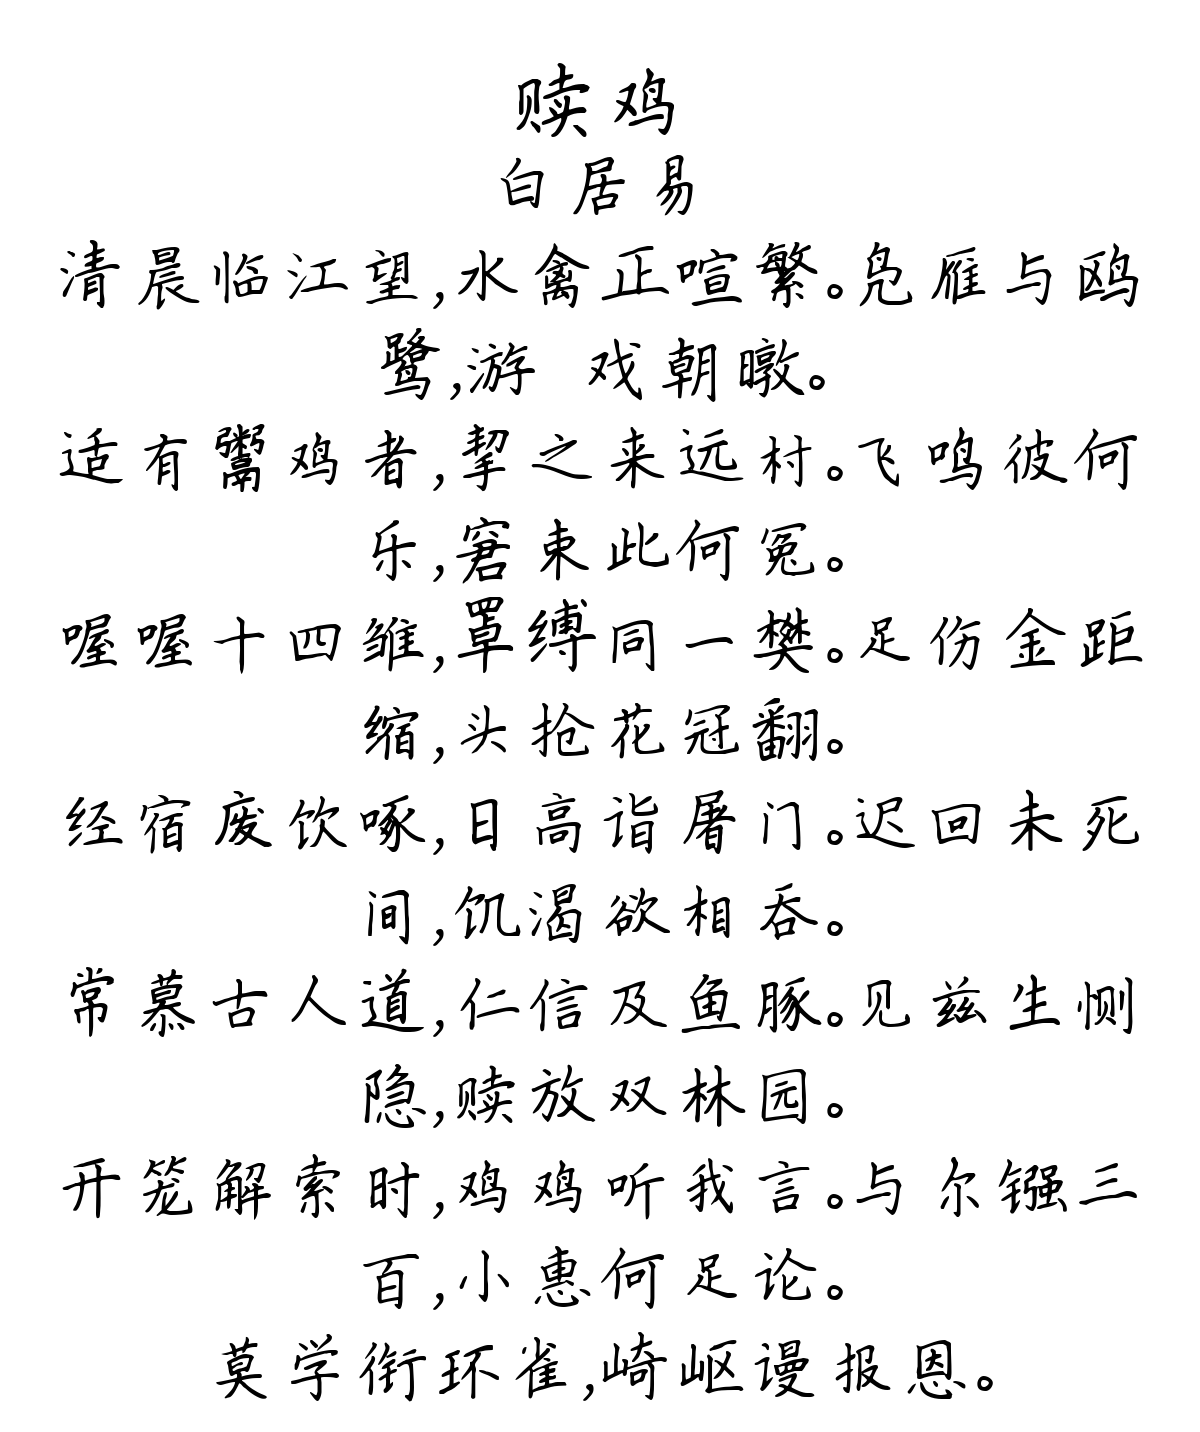 赎鸡
白居易
清晨临江望,水禽正喧繁。凫雁与鸥
鹭,游 戏朝暾。
适有鬻鸡者,挈之来远村。飞鸣彼何
乐,窘束此何冤。
喔喔十四雏,罩缚同一樊。足伤金距
缩,头抢花冠翻。
经宿废饮啄,日高诣屠门。迟回未死
间,饥渴欲相吞。
常慕古人道,仁信及鱼豚。见兹生恻
隐,赎放双林园。
开笼解索时,鸡鸡听我言。与尔镪三
百,小惠何足论。
莫学衔环雀,崎岖谩报恩。